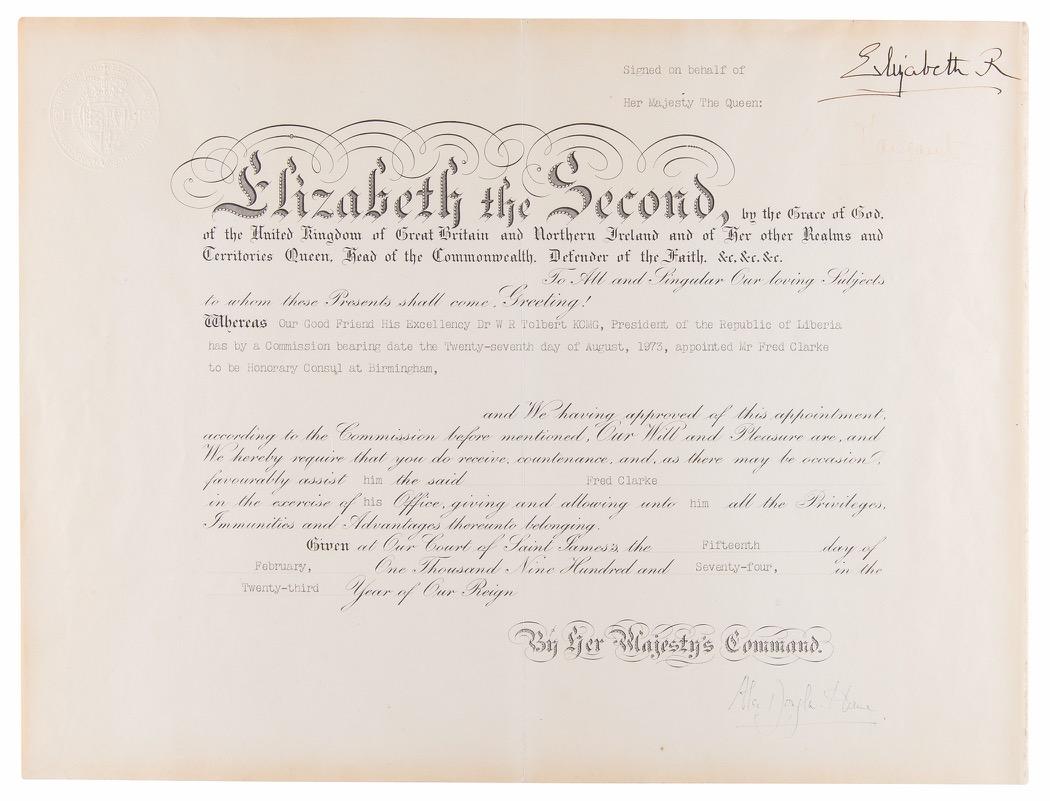 Signed on behalf of
Her Majesty The Queen:
Elizabeth R
Elizabeth the Second, by the Grace of God,
of the United Kingdom of Great Britain and Northern Ireland and of Her other Realms and
Territories Queen, Head of the Commonwealth, Defender of the Faith, &c. &c. &c.
To All and Singular Our loving Subjects
to whom these Presents shall come, Greeting!
Whereas Our Good Friend His Excellency Dr W R Tolbert KCMG, President of the Republic of Liberia
has by a Commission bearing date the Twenty-seventh day of August, 1973, appointed Mr Fred Clarke
to be Honorary Consul at Birmingham,
and We having approved of this appointment,
according to the Commission before mentioned, Our Will and Pleasure are, and
We hereby require that you do receive, countenance, and, as there may be occasion,
favourably assist him the said Fred Clarke
in the exercise of his Office, giving and allowing unto him all the Privileges,
Immunities and Advantages thereunto belonging.
Given at Our Court of Saint James's, the Fifteenth day of
February, One Thousand Nine Hundred and Seventy-four, in the
Twenty-third Year of Our Reign
By Her Majesty's Command.
Alec Douglas-Home